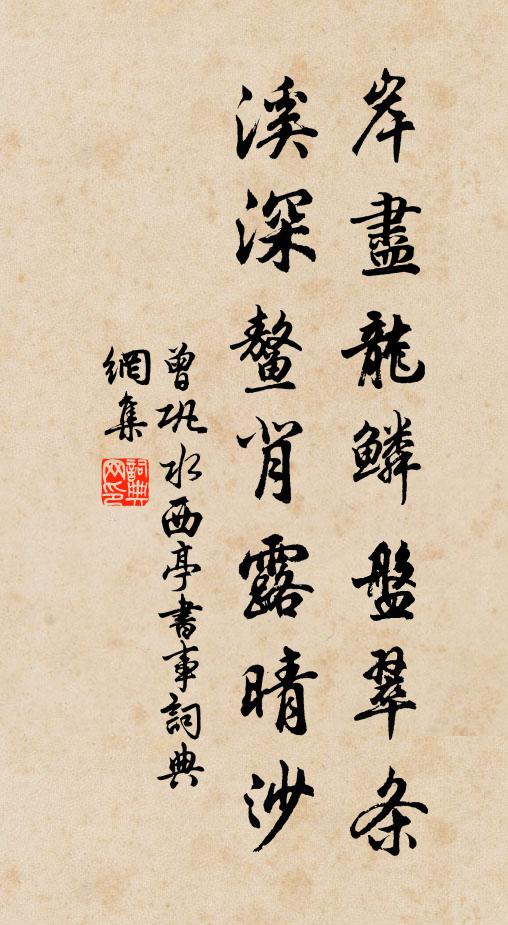 岸盡龍鱗盤翠条
溪深鼇背露晴沙
曾巩水西亭書事詞典
網集
詞典網印